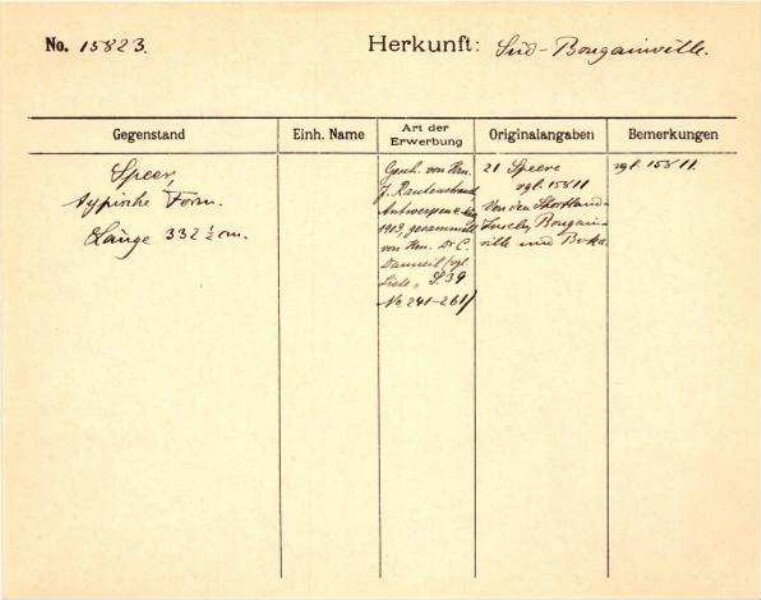 No. 15823.
Herkunft: Süd-Bougainville.
Gegenstand
Einh. Name
Art der Erwerbung
Originalangaben
Bemerkungen
Speer,
typische Form.
Länge 332 ½ cm.
Gesch. von Hrn.
J. Rautenstrauch
Antwerpen
1903, gesammelt
von Hrn. Dr C.
Danneil (vgl.
Liste, S. 39
No 241-261)
21 Speere
vgl. 15811
Von den Shortland-
Inseln, Bougain-
ville und Buka.
vgl. 15811.